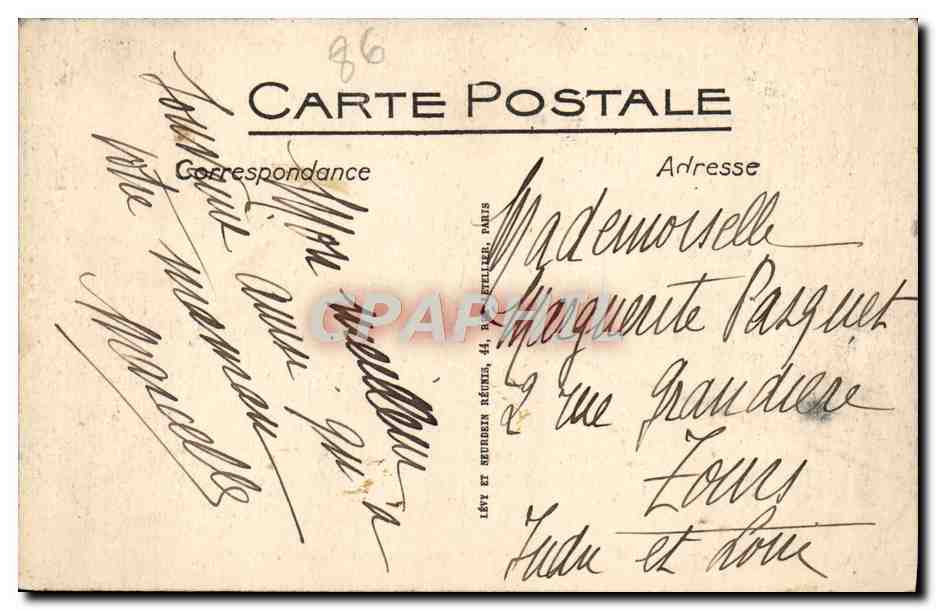 86
CARTE POSTALE
Correspondance
Adresse
Mon meilleur
souvenir ainsi qu'à
votre maman
Marcelle
LÉVY ET NEURDEIN RÉUNIS, 44, R. LETELLIER, PARIS
Mademoiselle
Marguerite Pasquet
2 rue Grandière
Tours
Indre et Loire
CPAPHIL